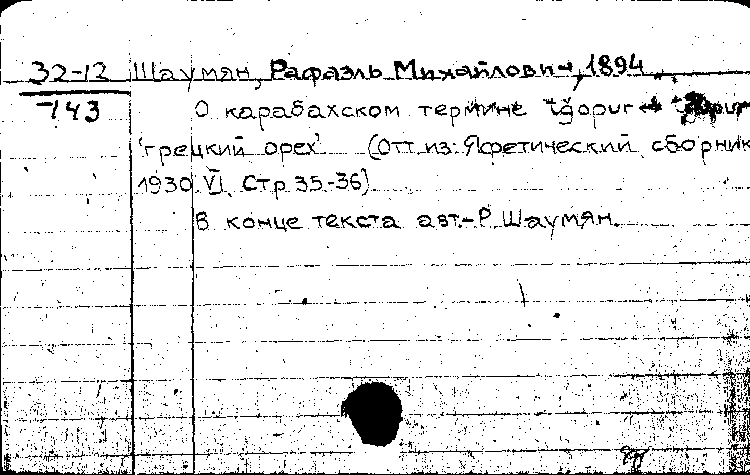 32-12 Шаумян, Рафаэль Михайлович, 1894
743 О карабахском термине tğopur ↔
'грецкий орех' (Отт. из: Яфетический сборник
1930. VI. Стр. 35-36)
В конце текста авт.- Р. Шаумян.